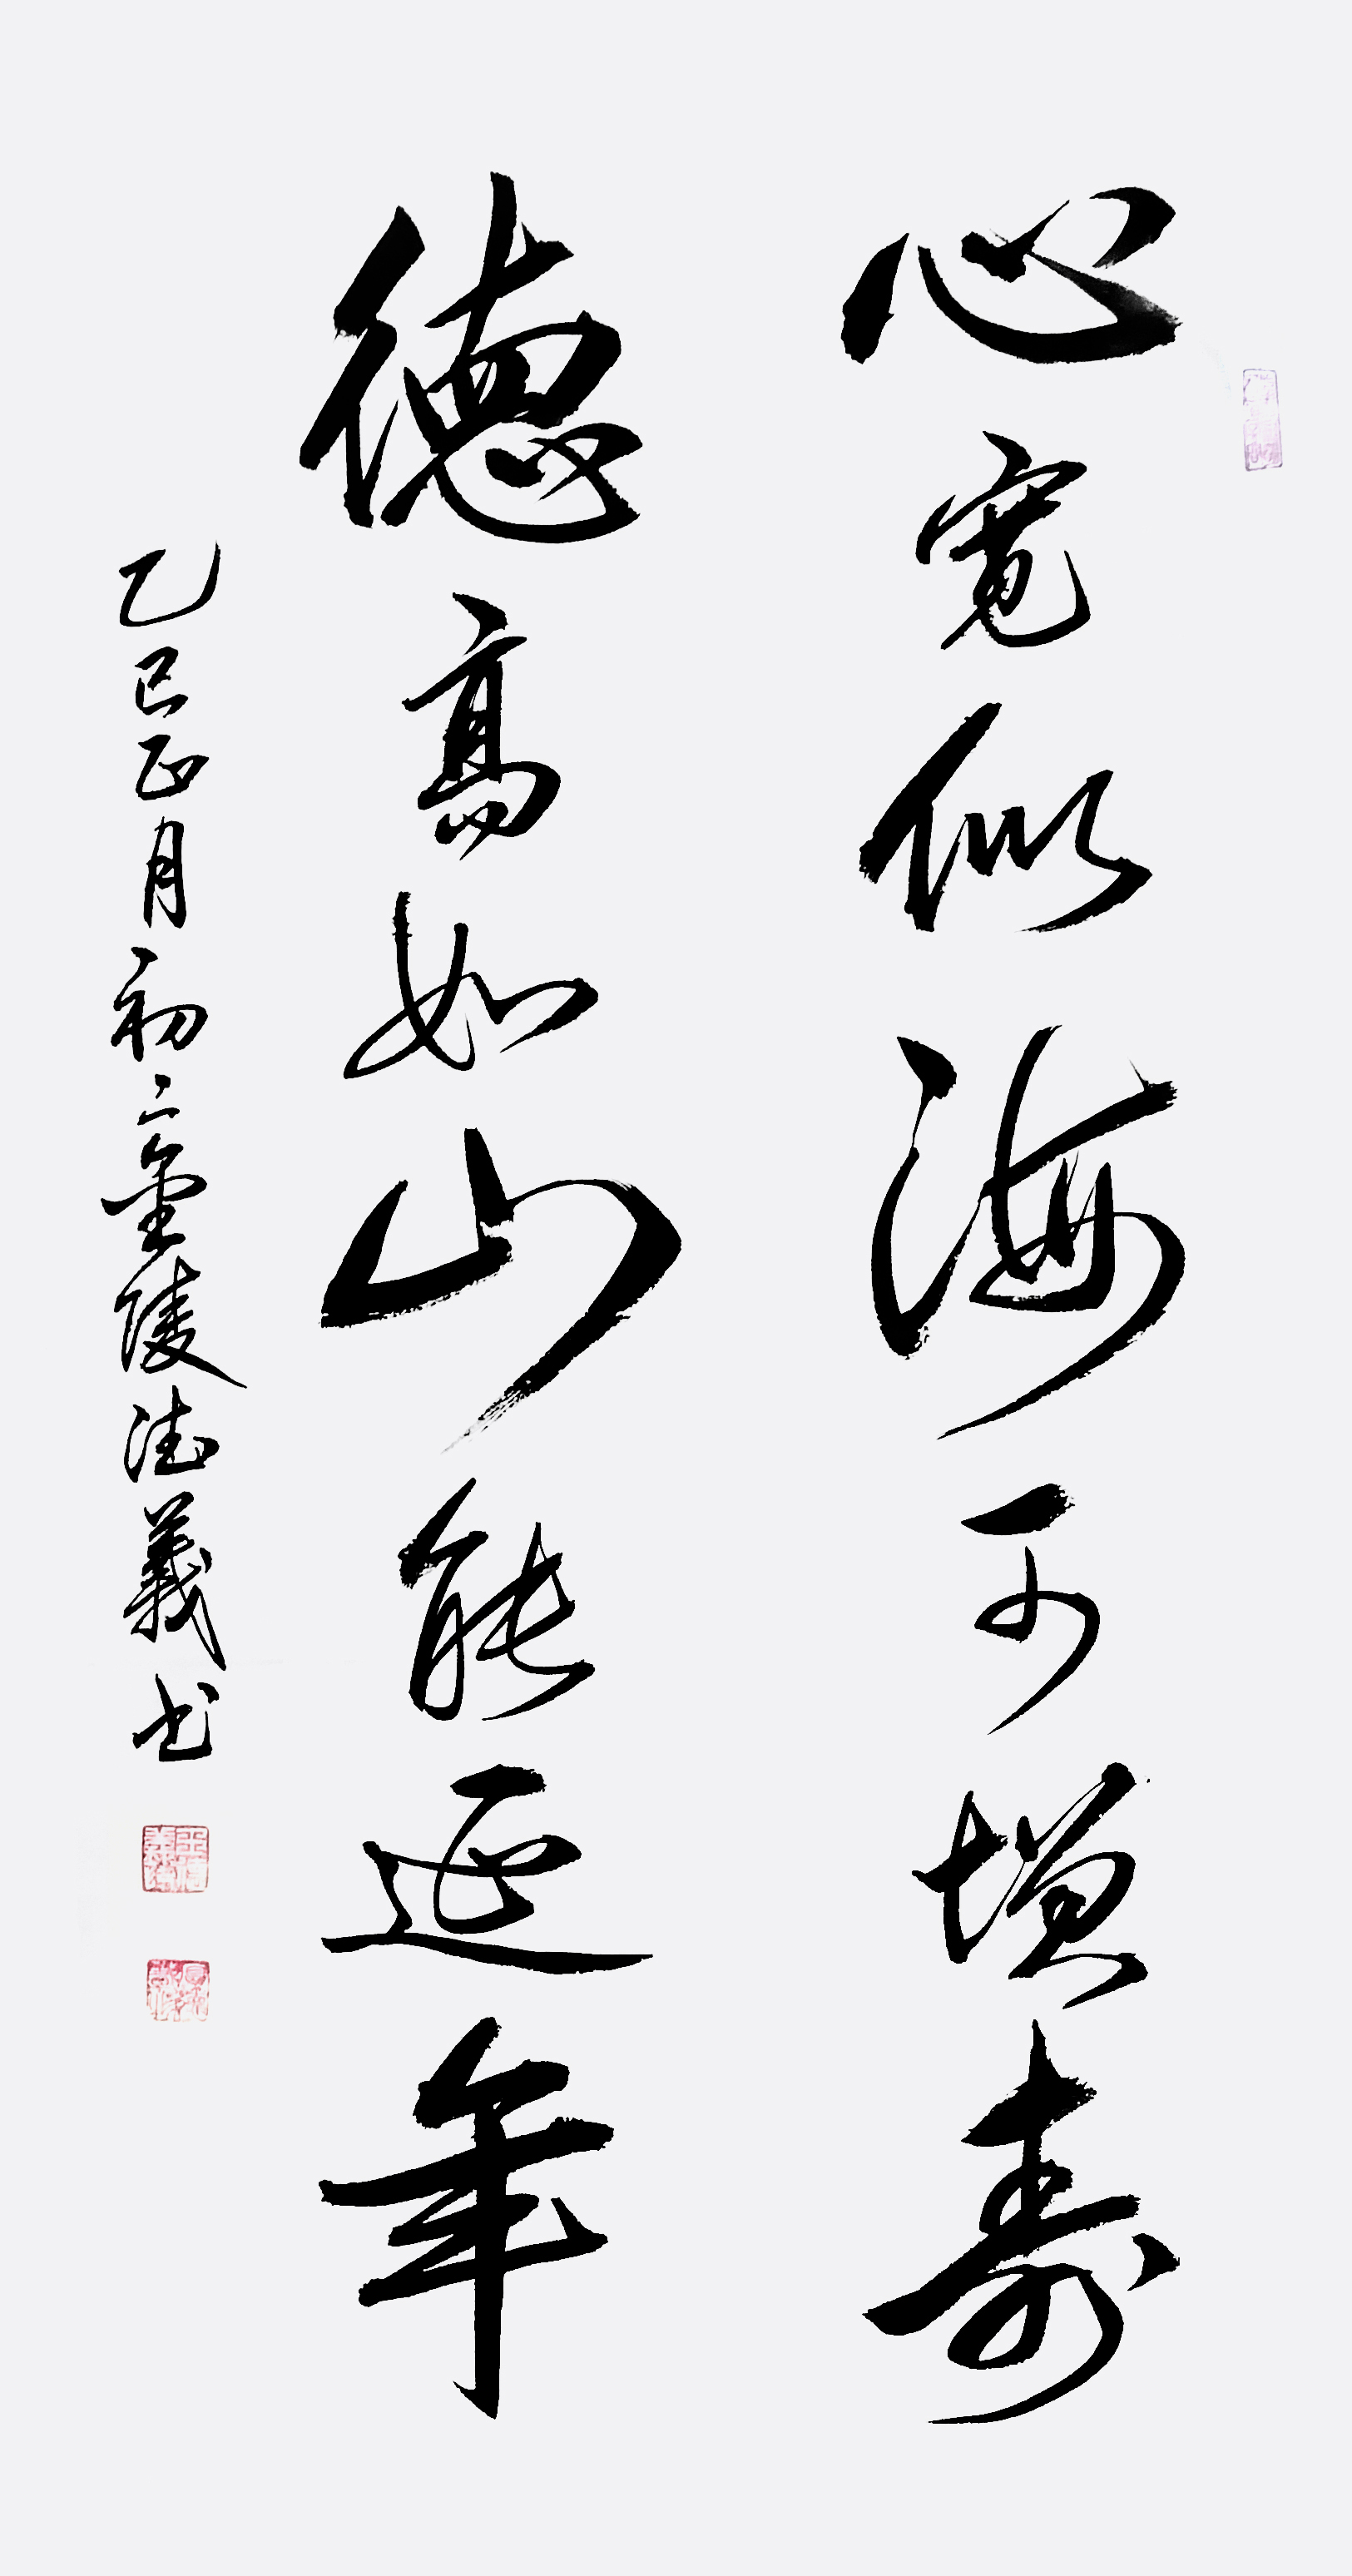 心宽似海可增寿
德高如山能延年
乙巳正月初六金陵德義书